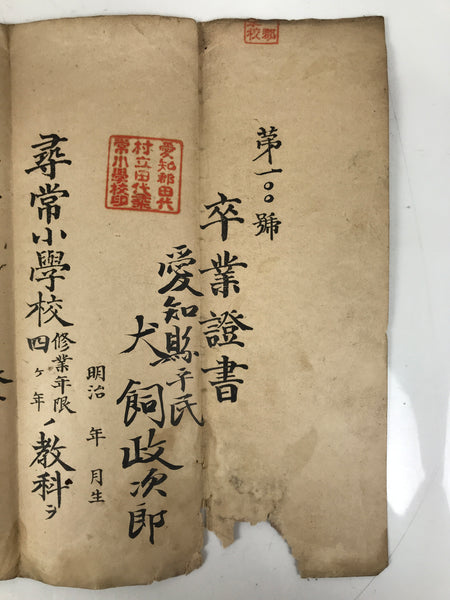 郡
校
第一〇〇號
卒業證書
愛知郡田代
村立田代尋
常小學校印
愛知縣平民
犬飼政次郎
明治 年 月生
尋常小學校修業年限四ヶ年ノ教科ヲ